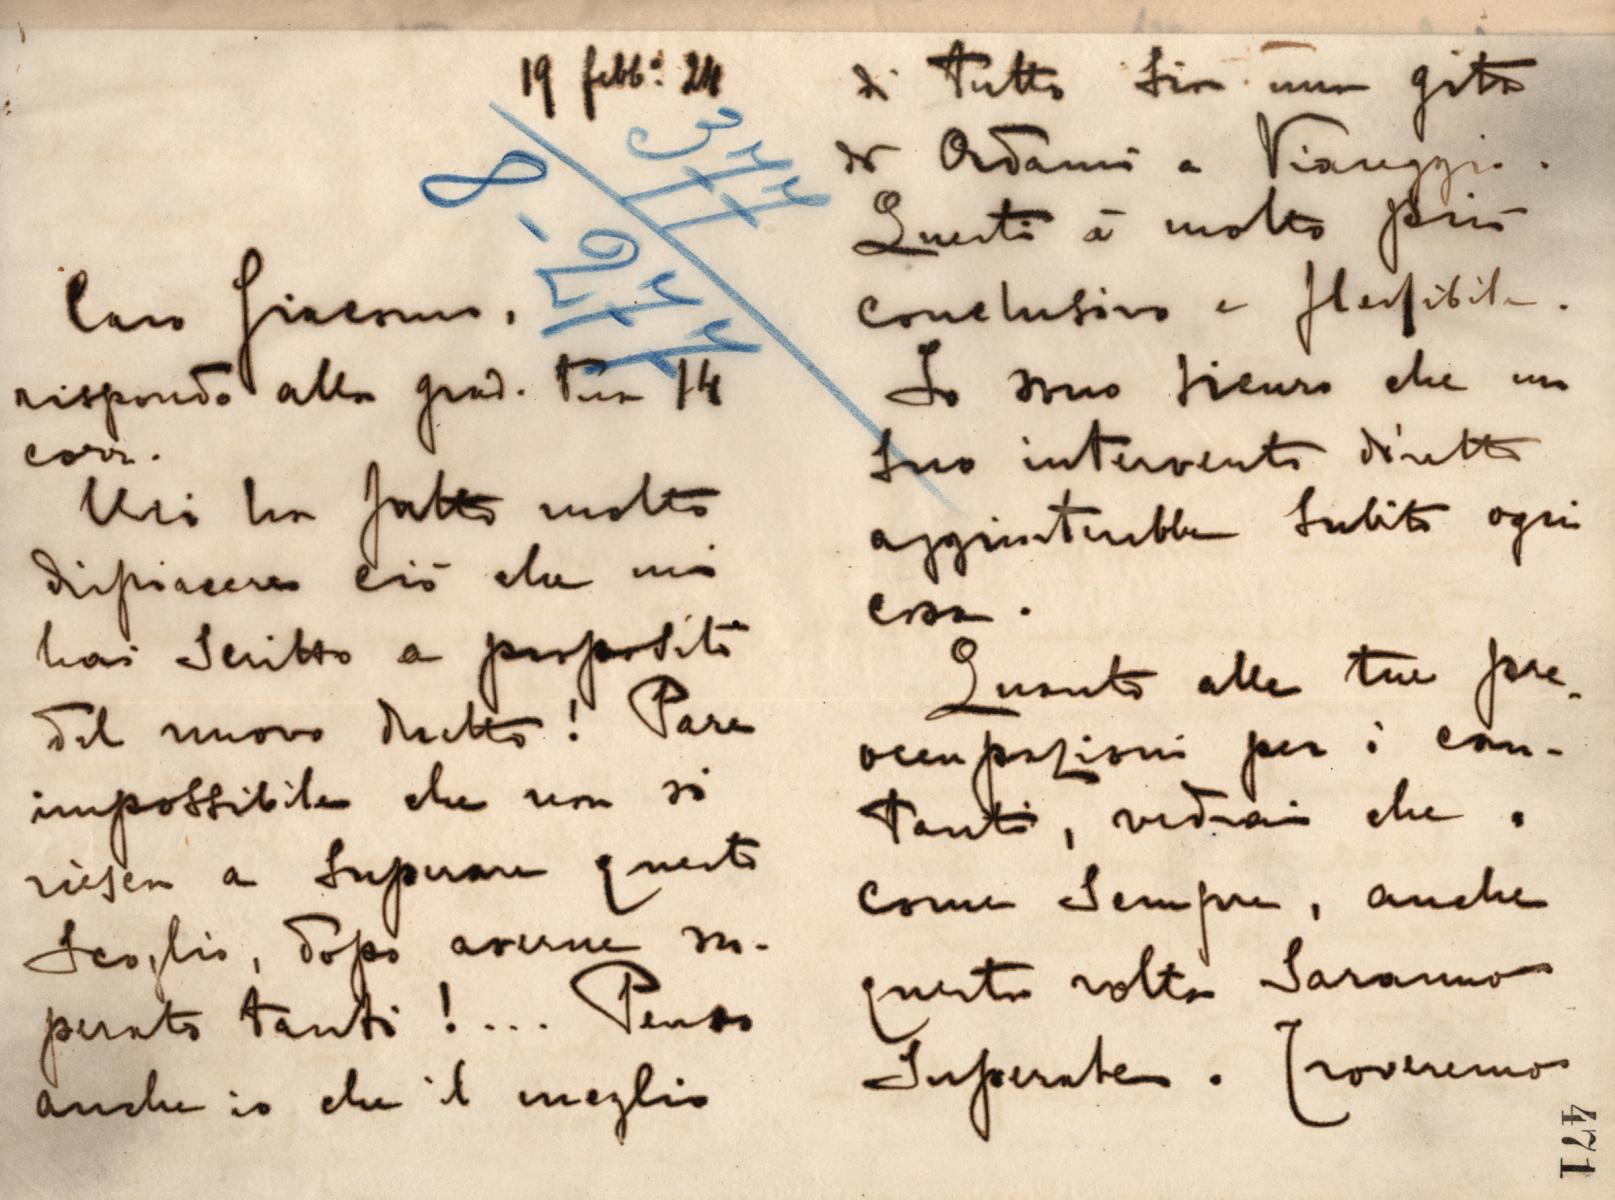 19 febb.º 24
Caro Giacomo,
rispondo alla grad. tua 14
corr.
Mi ha fatto molto
dispiacere ciò che mi
hai scritto a proposito
del nuovo duetto! Pare
impossibile che non si
riesca a superare questo
scoglio, dopo averne su-
perato tanti!... Penso
anche io che il meglio
di tutto sia una gita
di Adami a Viareggio.
Questi è molto più
conclusivo e flessibile.
Io sono sicuro che un
suo intervento diretto
aggiusterebbe subito ogni
cosa.
Quanto alle tue pre-
occupazioni per i can-
tanti, vedrai che,
come sempre, anche
questa volta saranno
superate. Troveremo
471